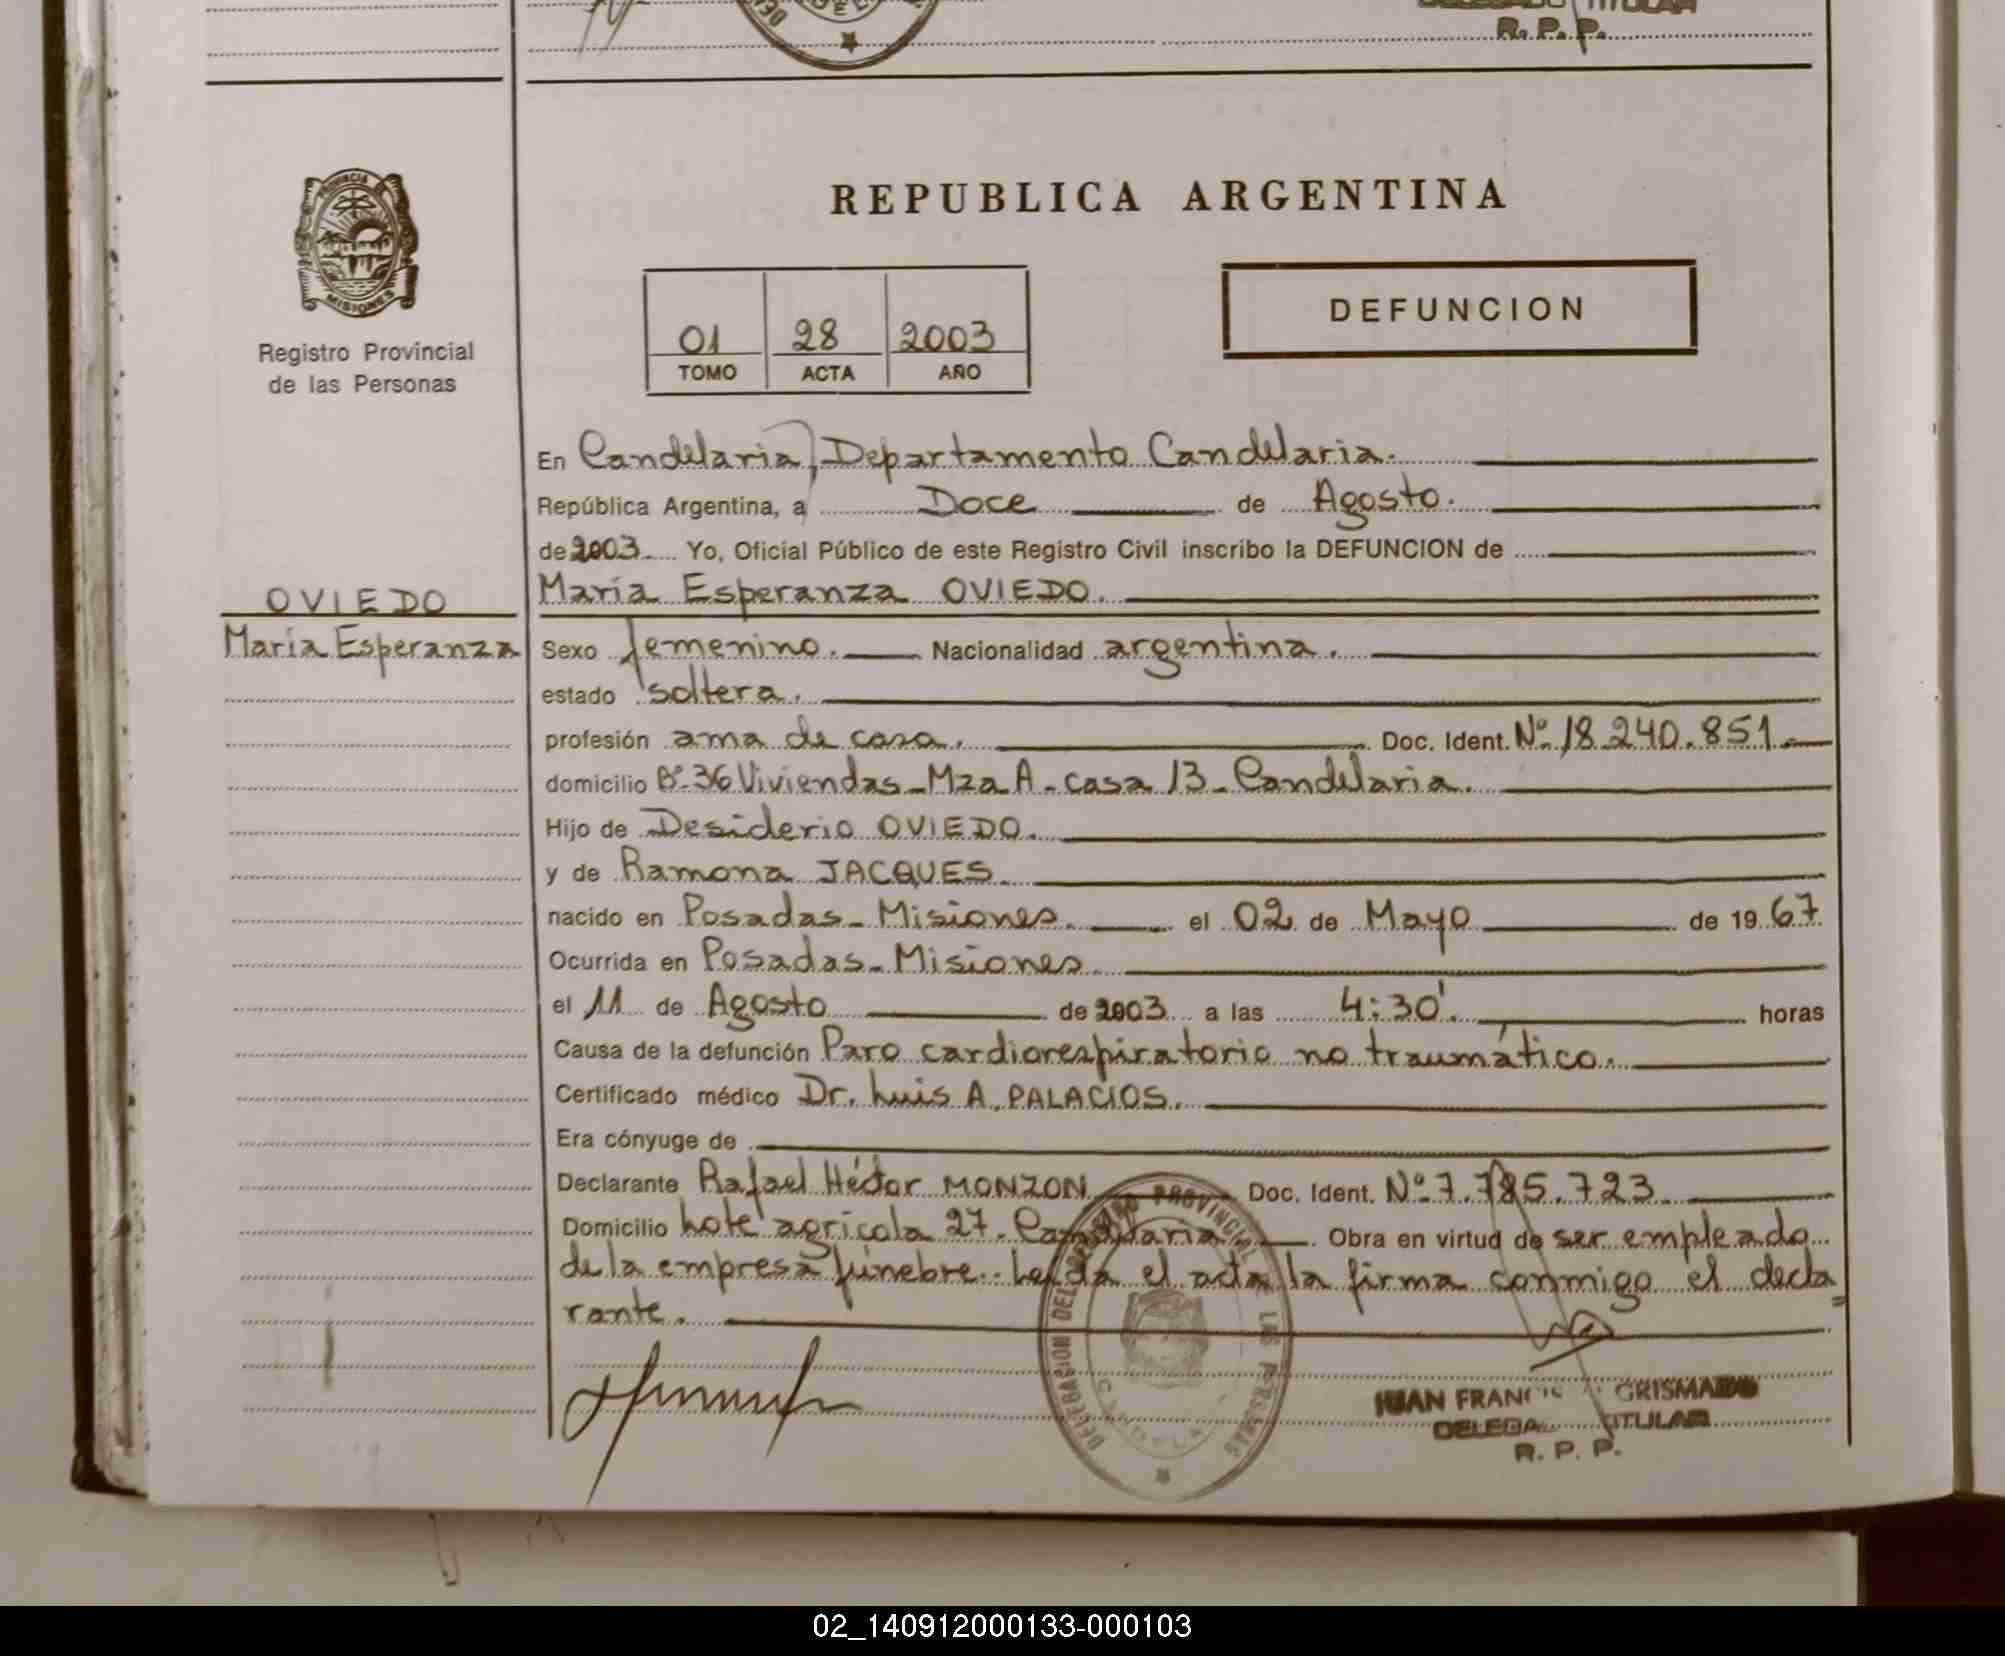 R. P. P.
PROVINCIA DE
MISIONES
Registro Provincial
de las Personas
REPUBLICA ARGENTINA
DEFUNCION
01 28 2003
TOMO ACTA AÑO
En Candelaria, Departamento Candelaria.
República Argentina, a Doce de Agosto.
de 2003 Yo, Oficial Público de este Registro Civil inscribo la DEFUNCION de
OVIEDO
María Esperanza OVIEDO.
María Esperanza
Sexo femenino. Nacionalidad argentina.
estado soltera.
profesión ama de casa. Doc. Ident. Nº 18.240.851
domicilio Bº 36 Viviendas - Mza A - casa 13 - Candelaria.
Hijo de Desiderio OVIEDO.
y de Ramona JACQUES
nacido en Posadas - Misiones. el 02 de Mayo de 1967
Ocurrida en Posadas - Misiones
el 11 de Agosto de 2003 a las 4:30' horas
Causa de la defunción Paro cardiorespiratorio no traumático.
Certificado médico Dr. Luis A. PALACIOS.
Era cónyuge de
Declarante Rafael Héctor MONZON Doc. Ident. Nº 7.785.723
Domicilio Lote agrícola 27 - Candelaria Obra en virtud de ser empleado
de la empresa fúnebre. Leída el acta la firma conmigo el decla
rante.
DELEGACION DEL REGISTRO PROVINCIAL DE LAS PERSONAS
JUAN FRANCISCO GRISMADO
DELEGADO TITULAR
R. P. P.
02_140912000133-000103